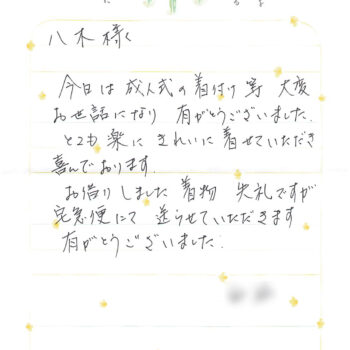 八木様
今日は成人式の着付け等 大変
お世話になり 有がとうございました.
とても楽に きれいに着せていただき
喜んでおります.
お借りしました着物 失礼ですが
宅急便にて 送らせていただきます
有がとうございました.